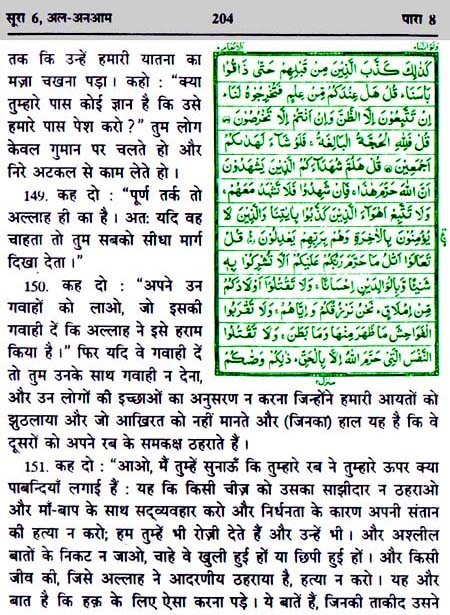 सूरा 6, अल-अनआम 204 पारा 8
तक कि उन्हें हमारी यातना का
मज़ा चखना पड़ा। कहो : “क्या
तुम्हारे पास कोई ज्ञान है कि उसे
हमारे पास पेश करो ?” तुम लोग
केवल गुमान पर चलते हो और
निरे अटकल से काम लेते हो।
149. कह दो : “पूर्ण तर्क तो
अल्लाह ही का है। अत: यदि वह
चाहता तो तुम सबको सीधा मार्ग
दिखा देता।”
150. कह दो : “अपने उन
गवाहों को लाओ, जो इसकी
गवाही दें कि अल्लाह ने इसे हराम
किया है।” फिर यदि वे गवाही दें
तो तुम उनके साथ गवाही न देना,
كَذٰلِكَ كَذَّبَ الَّذِيْنَ مِنْ قَبْلِهِمْ حَتّٰى ذَاقُوْا
بَاْسَنَا قُلْ هَلْ عِنْدَكُمْ مِّنْ عِلْمٍ فَتُخْرِجُوْهُ لَنَا
اِنْ تَتَّبِعُوْنَ اِلَّا الظَّنَّ وَاِنْ اَنْتُمْ اِلَّا تَخْرُصُوْنَ
قُلْ فَلِلّٰهِ الْحُجَّةُ الْبَالِغَةُ فَلَوْ شَآءَ لَهَدٰىكُمْ
اَجْمَعِيْنَ قُلْ هَلُمَّ شُهَدَآءَكُمُ الَّذِيْنَ يَشْهَدُوْنَ
اَنَّ اللّٰهَ حَرَّمَ هٰذَا فَاِنْ شَهِدُوْا فَلَا تَشْهَدْ مَعَهُمْ
وَلَا تَتَّبِعْ اَهْوَآءَ الَّذِيْنَ كَذَّبُوْا بِاٰيٰتِنَا وَالَّذِيْنَ لَا
يُؤْمِنُوْنَ بِالْاٰخِرَةِ وَهُمْ بِرَبِّهِمْ يَعْدِلُوْنَ قُلْ
تَعَالَوْا اَتْلُ مَا حَرَّمَ رَبُّكُمْ عَلَيْكُمْ اَلَّا تُشْرِكُوْا بِهٖ
شَيْئًا وَّبِالْوَالِدَيْنِ اِحْسَانًا وَلَا تَقْتُلُوْٓا اَوْلَادَكُمْ
مِّنْ اِمْلَاقٍ نَحْنُ نَرْزُقُكُمْ وَاِيَّاهُمْ وَلَا تَقْرَبُوا
الْفَوَاحِشَ مَا ظَهَرَ مِنْهَا وَمَا بَطَنَ وَلَا تَقْتُلُوا
النَّفْسَ الَّتِيْ حَرَّمَ اللّٰهُ اِلَّا بِالْحَقِّ ذٰلِكُمْ وَصّٰىكُمْ
और उन लोगों की इच्छाओं का अनुसरण न करना जिन्होंने हमारी आयतों को
झुठलाया और जो आख़िरत को नहीं मानते और (जिनका) हाल यह है कि वे
दूसरों को अपने रब के समकक्ष ठहराते हैं।
151. कह दो : “आओ, मैं तुम्हें सुनाऊँ कि तुम्हारे रब ने तुम्हारे ऊपर क्या
पाबन्दियाँ लगाई हैं : यह कि किसी चीज़ को उसका साझीदार न ठहराओ
और माँ-बाप के साथ सद्व्यवहार करो और निर्धनता के कारण अपनी संतान
की हत्या न करो; हम तुम्हें भी रोज़ी देते हैं और उन्हें भी। और अश्लील
बातों के निकट न जाओ, चाहे वे खुली हुई हों या छिपी हुई हों। और किसी
जीव की, जिसे अल्लाह ने आदरणीय ठहराया है, हत्या न करो। यह और
बात है कि हक़ के लिए ऐसा करना पड़े। ये बातें हैं, जिनकी ताकीद उसने